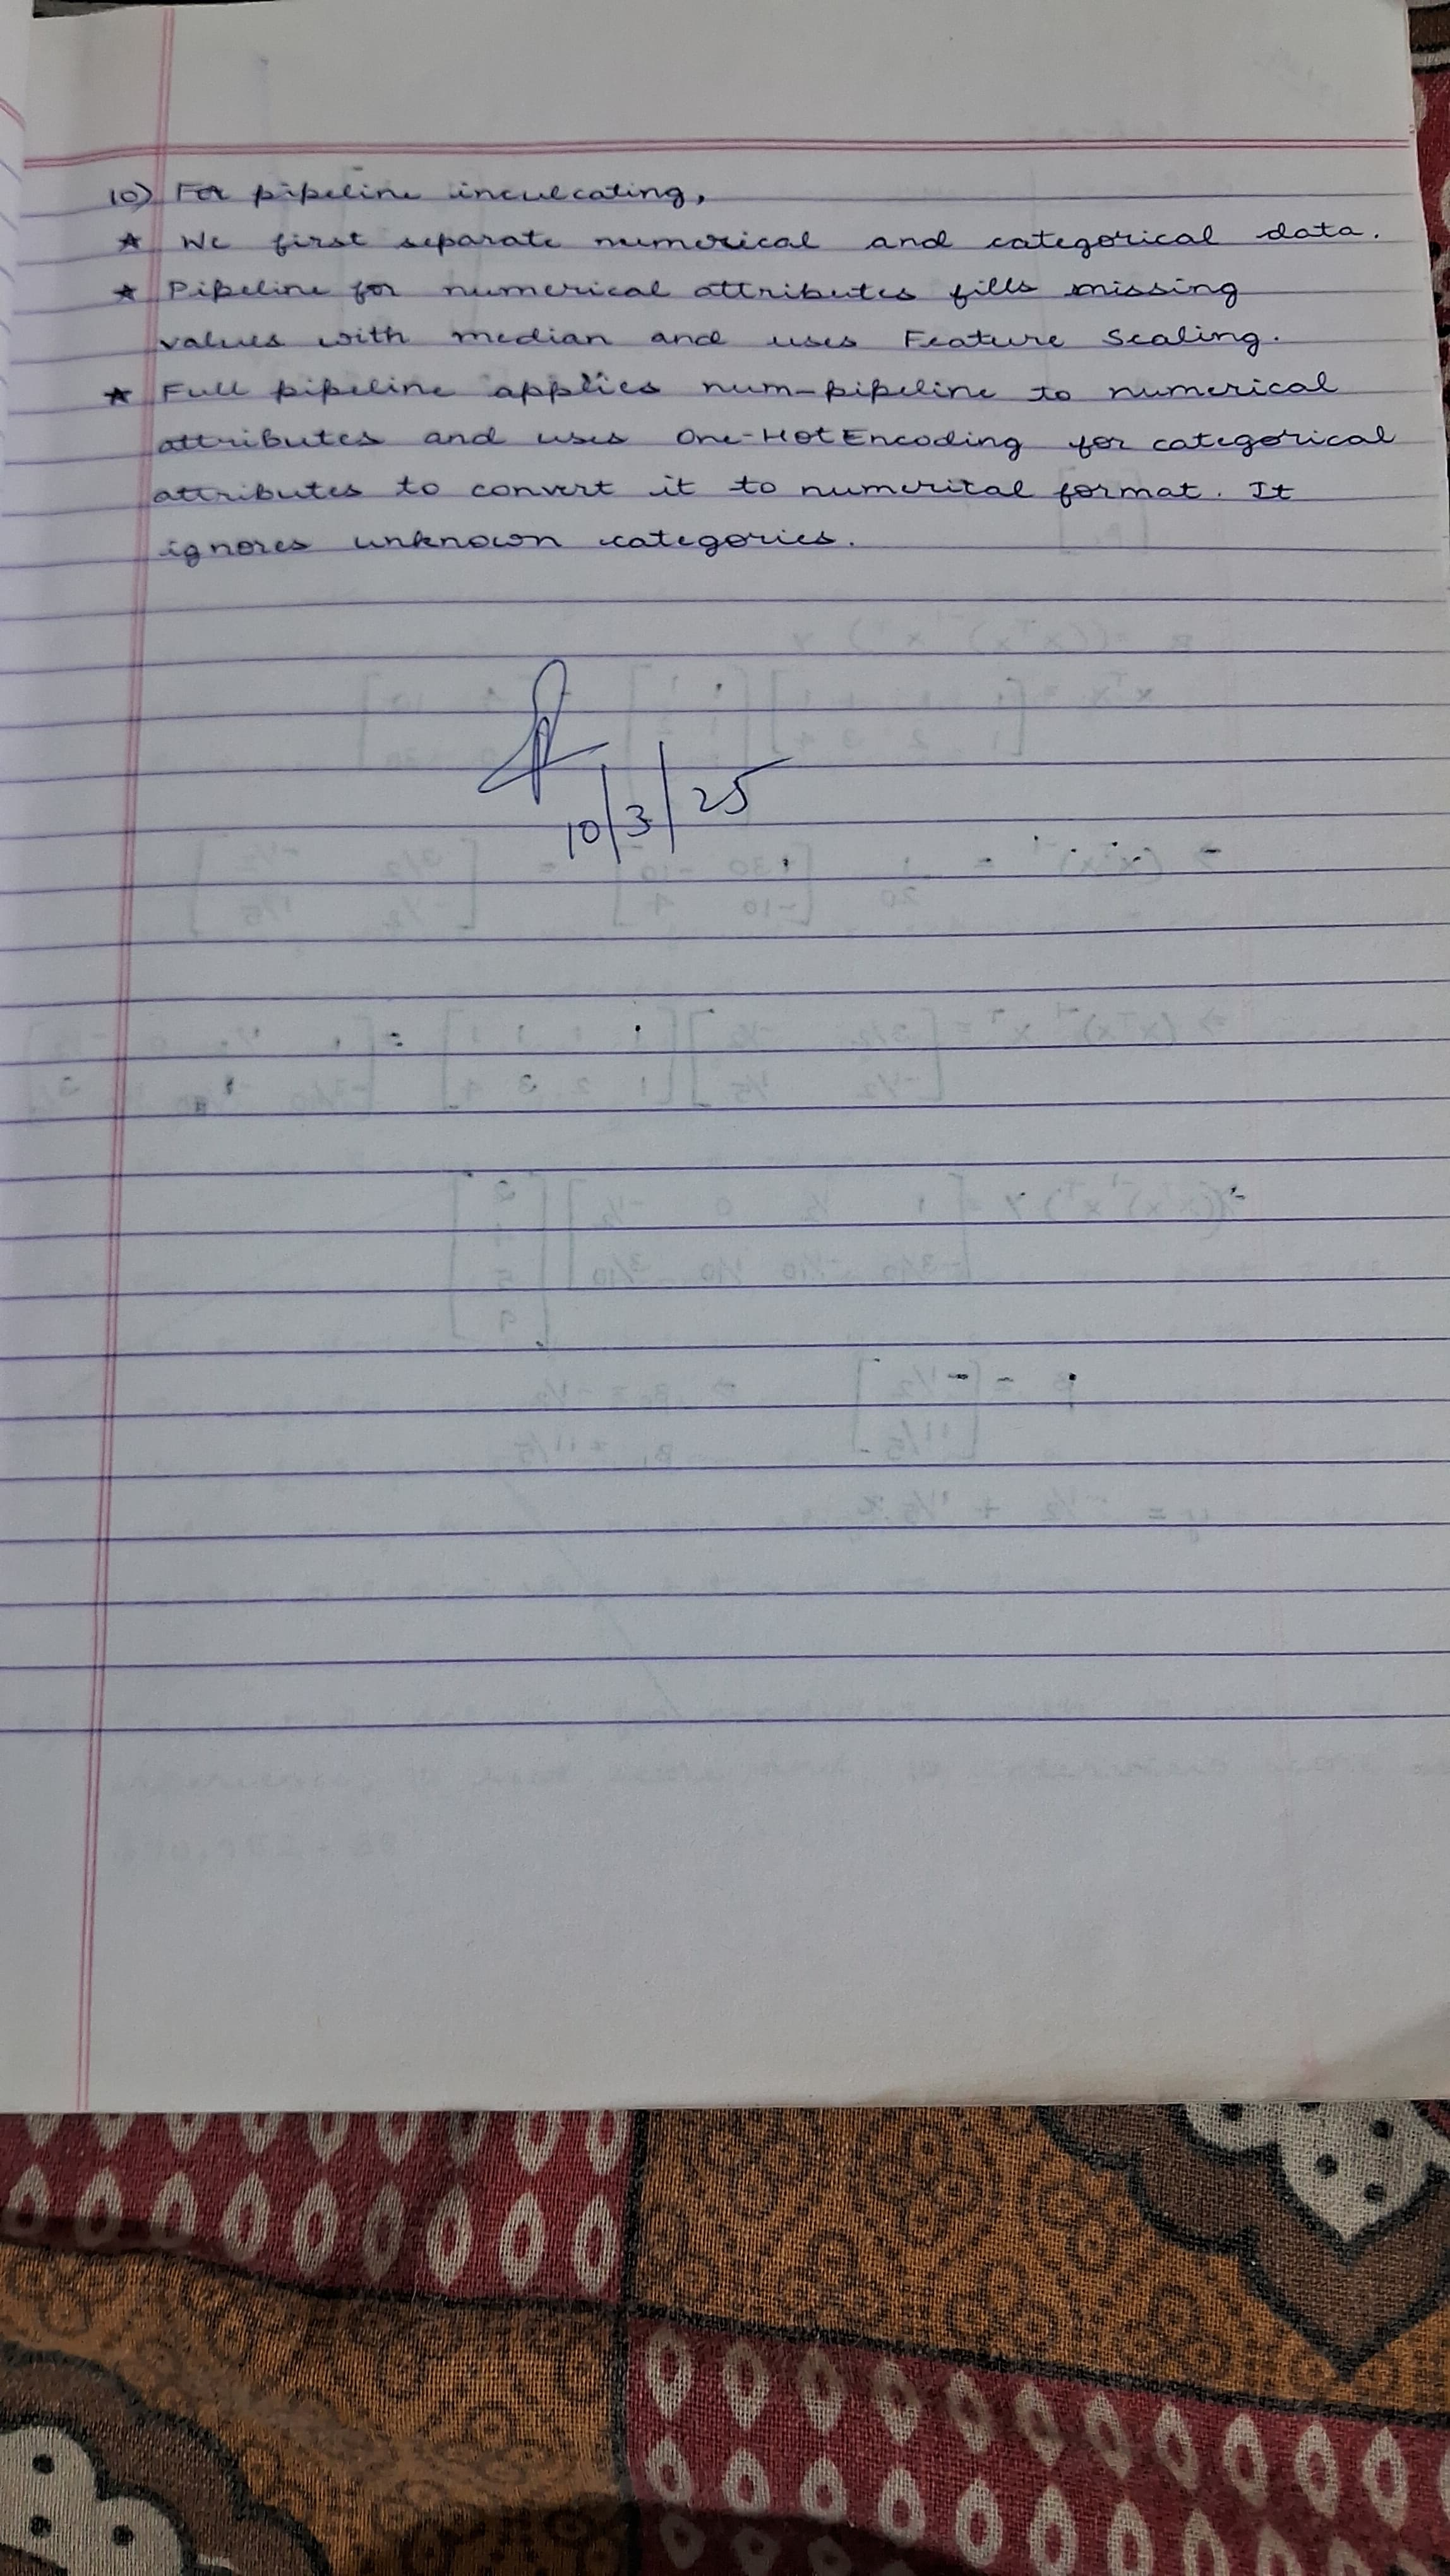 10) For pipeline inculcating,
★ We first separate numerical and categorical data.
★ Pipeline for numerical attributes fills missing
values with median and uses Feature Scaling.
★ Full pipeline applies num-pipeline to numerical
attributes and uses One-HotEncoding for categorical
attributes to convert it to numerical format. It
ignores unknown categories.
10/3/25